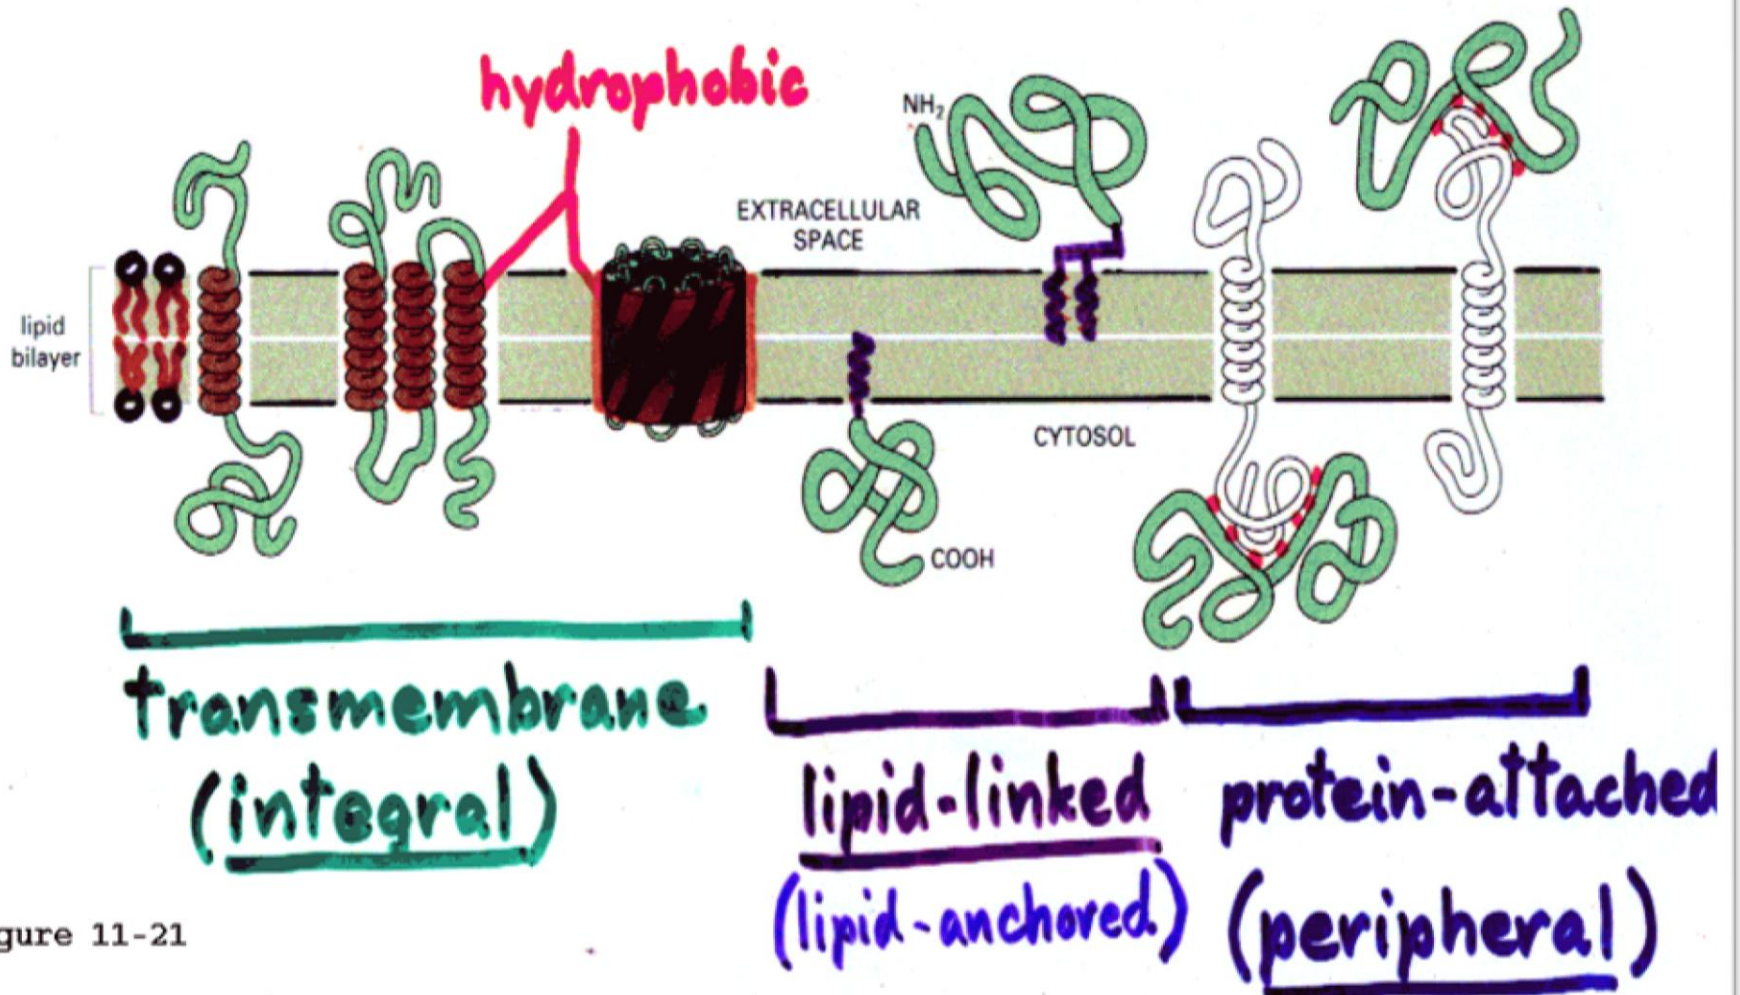 hydrophobic
NH₂
EXTRACELLULAR
SPACE
lipid
bilayer
CYTOSOL
COOH
transmembrane
(integral)
lipid-linked
(lipid-anchored)
protein-attached
(peripheral)
gure 11-21